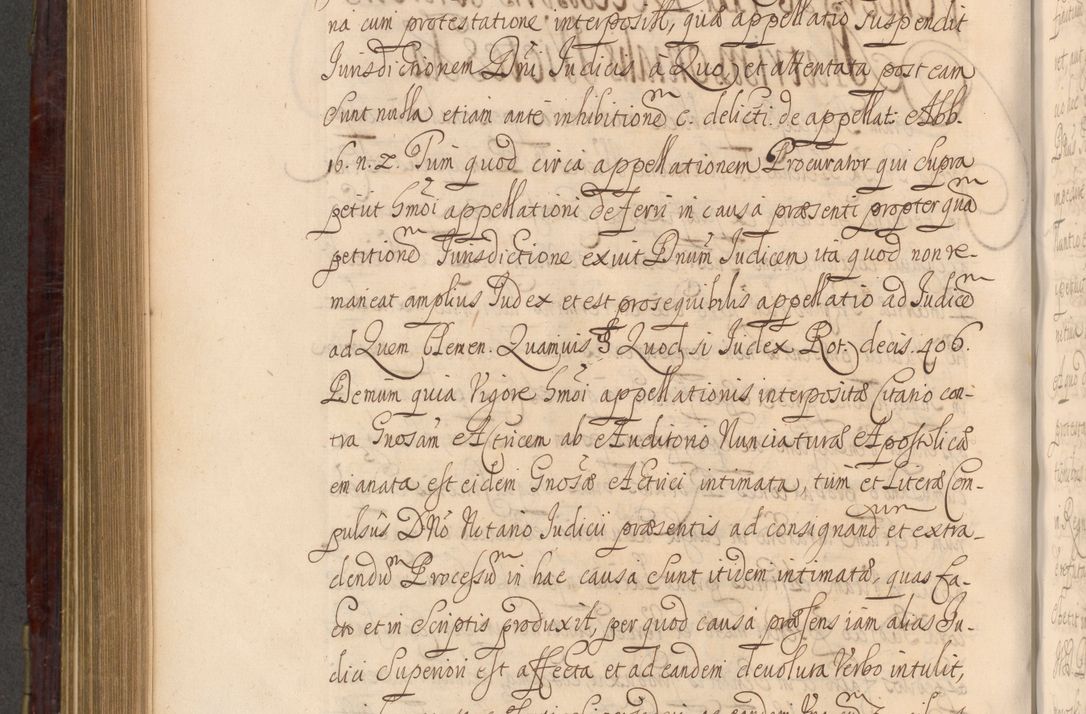 na cum protestatione interposit, qua appellatio suspendit
Iurisdictionem Dni Iudicis à Quo, et attentata post eam
sunt nulla etiam ante inhibitionem c. delicti de appellat: Abb.
16. n. 2. Tum quod circa appellationem Procurator qui supra
petiit hmoi appellationi deferri in causa præsenti propter qua
petitionem Iurisdictione exuit Dnum Iudicem ita quod non re-
maneat amplius Iudex et est prosequibilis appellatio ad Iudicem
ad Quem Clemen. Quamvis § Quod si Iudex Rot. decis. 406.
Demum quia vigore hmoi appellationis interpositæ Citatio con-
tra Gnosam Actricem ab Auditorio Nunciaturæ Apostolicæ
emanata est eidem Gnosæ Actrici intimata, tum et Literæ Com-
pulsus DNo Notario Iudicii præsentis ad consignandum et extra-
dendum Processum in hac causa sunt itidem intimatæ, quas fa-
cto et in scriptis produxit, per quod causa præsens iam alias Iu-
dici Superiori est affecta et ad eandem devoluta verbo intulit,